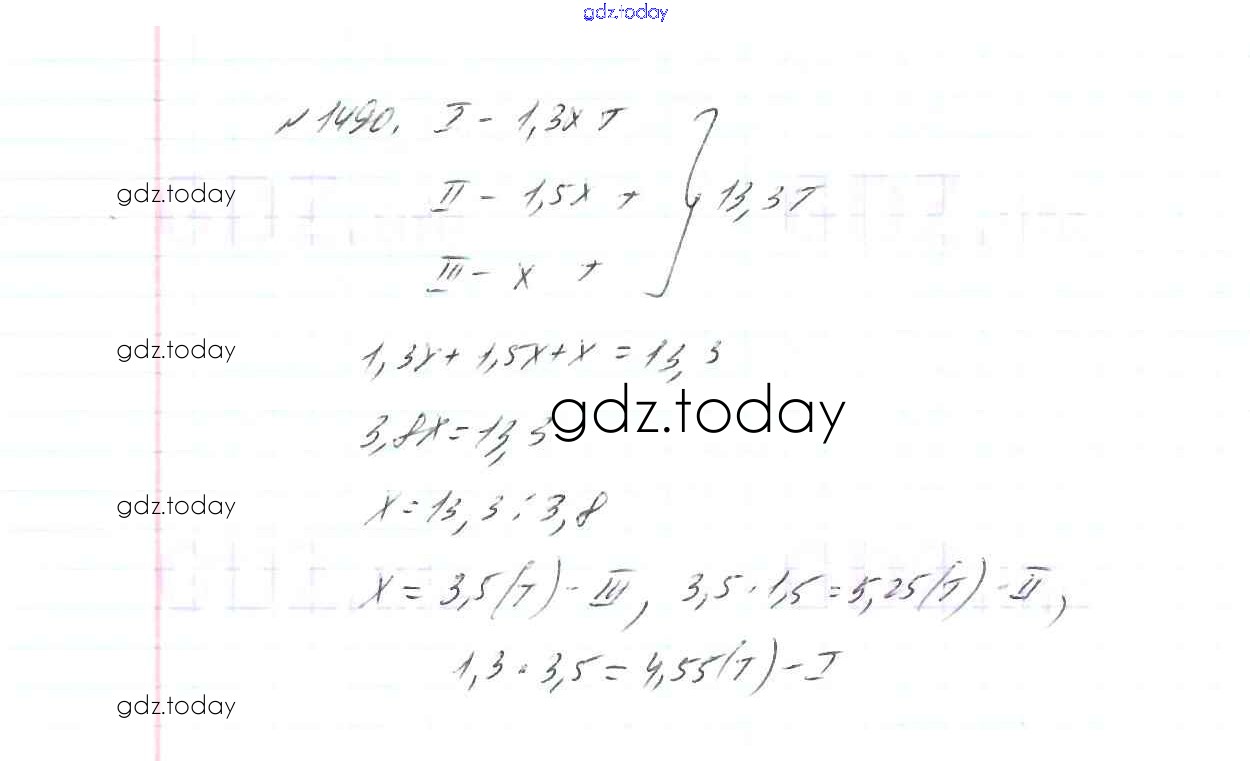 gdz.today
№1490. I - 1,3x т
gdz.today
II - 1,5x т } 13,3т
III - x т
gdz.today
1,3x + 1,5x + x = 13,3
gdz.today
3,8x = 13,3
gdz.today
x = 13,3 : 3,8
x = 3,5 (т) - III, 3,5 · 1,5 = 5,25 (т) - II,
1,3 · 3,5 = 4,55 (т) - I
gdz.today